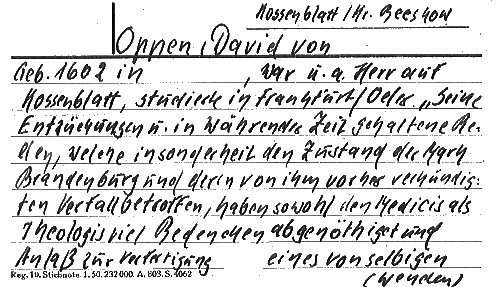 Kossenblatt / Kr. Beeskow
Oppen, David von
Geb. 1602 in , war u. a. Herr auf
Kossenblatt, studierte in Frankfurt/Oder. „Seine
Entzückungen u. in währender Zeit gehaltene Re-
den, welche insonderheit den Zustand der Mark
Brandenburg und deren von ihm vorher verkündig-
ten Verfall betroffen, haben sowohl den Medicis als
Theologis viel Bedencken abgenöthiget und
Anlaß zur Verfertigung eines von selbigen
(wenden)
Reg. 10. Stichnote. 1. 50. 232000. A. 803. S. 4062